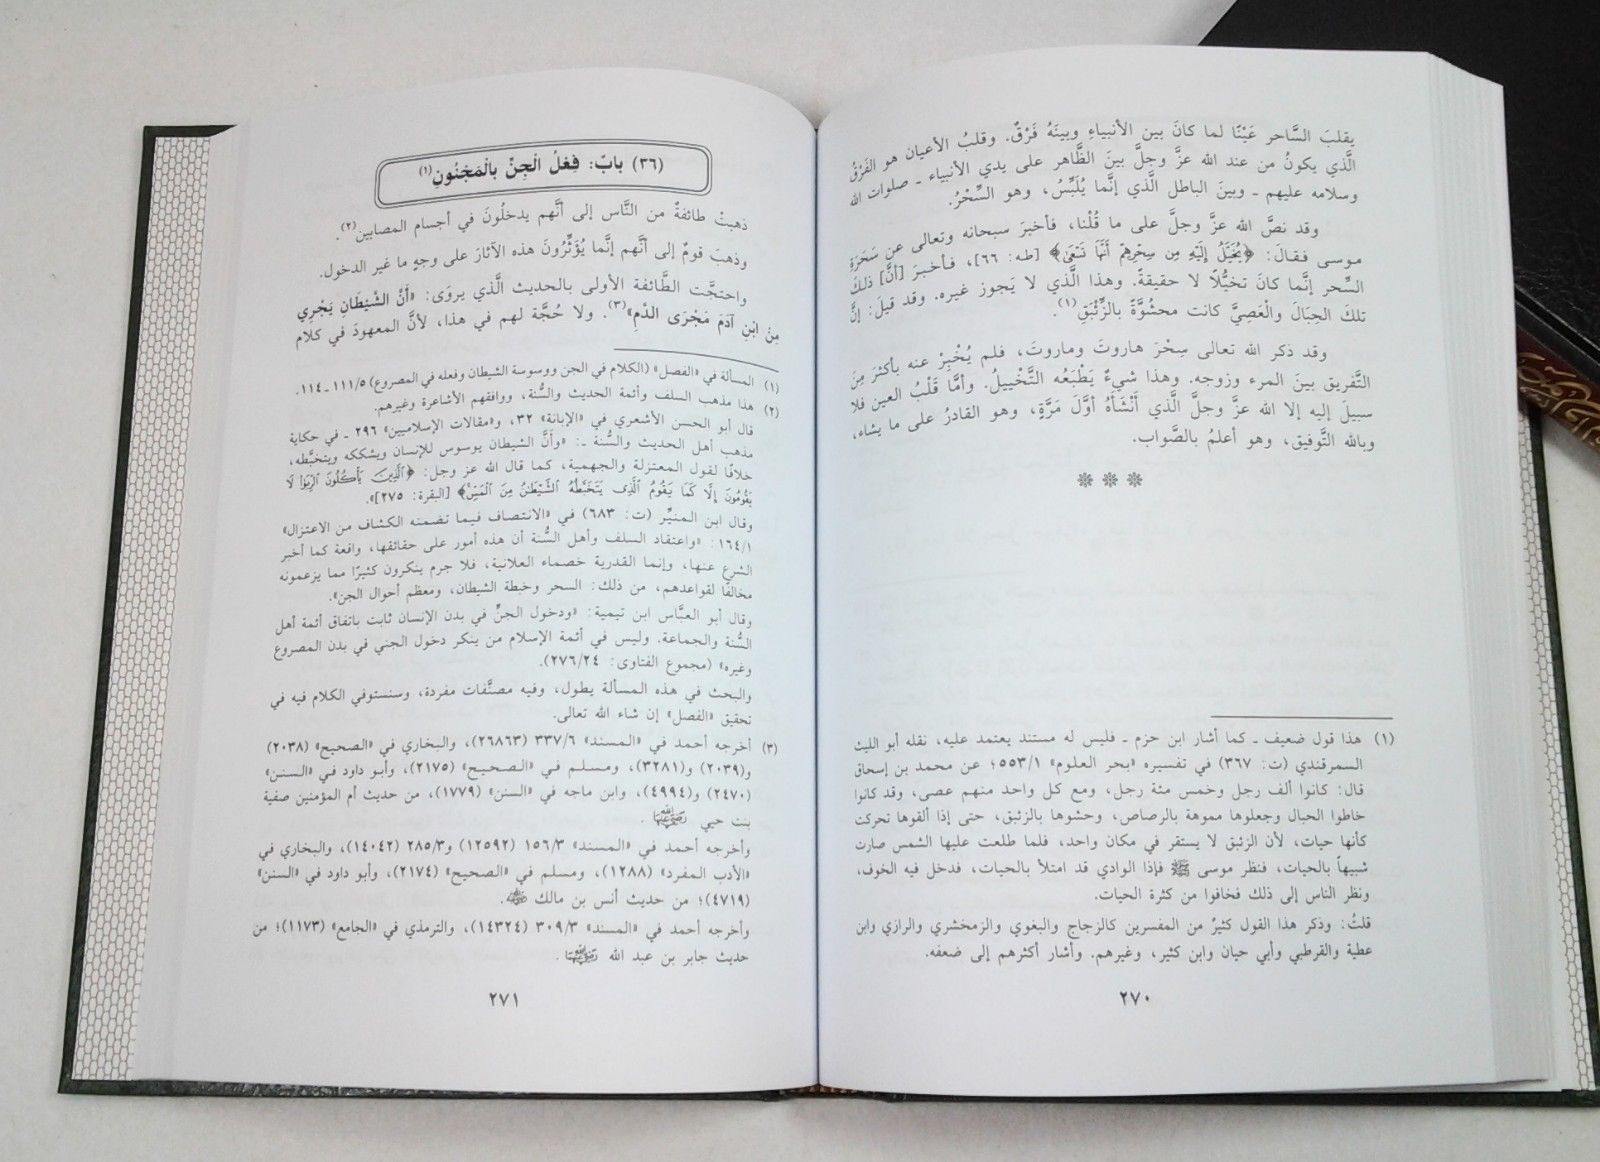 يقلبَ السَّاحر عَيْنًا لما كانَ بين الأنبياءِ وبينَهُ فَرْقٌ. وقلبُ الأعيان هو الفَرْقُ
الَّذي يكونُ من عند الله عزَّ وجلَّ بينَ الظَّاهر على يدي الأنبياء ـ صلوات الله
وسلامه عليهم ـ وبينَ الباطل الَّذي إنَّما يُلَبِّسُ، وهو السِّحْرُ.
وقد نصَّ الله عزَّ وجلَّ على ما قُلْنا، فأخبرَ سبحانه وتعالى عن سَحَرَةِ
موسى فقالَ: ﴿يُخَيَّلُ إِلَيْهِ مِن سِحْرِهِمْ أَنَّهَا تَسْعَىٰ﴾ [طه: ٦٦]، فأخبرَ [أنَّ] ذلكَ
السِّحر إنَّما كانَ تخيُّلًا لا حقيقةً. وهذا الَّذي لا يَجوز غيره. وقد قيلَ: إنَّ
تلكَ الحِبَالَ والْعَصِيَّ كانت محشُوَّةً بالزِّئْبَقِ(١).
وقد ذكر الله تعالى سِحْرَ هاروتَ وماروتَ، فلم يُخْبِرْ عنه بأكثرَ مِنَ
التَّفريق بينَ المرء وزوجه. وهذا شيءٌ يَطْبَعُه التَّخْييلُ. وأمَّا قَلْبُ العين فلا
سبيلَ إليه إلا الله عزَّ وجلَّ الَّذي أَنْشَأَهُ أوَّلَ مَرَّةٍ، وهو القادرُ على ما يشاء،
وبالله التَّوفيق، وهو أعلمُ بالصَّواب.
❊ ❊ ❊
(١) هذا قول ضعيف ـ كما أشار ابن حزم ـ فليس له مستند يعتمد عليه، نقله أبو الليث
السمرقندي (ت: ٣٦٧) في تفسيره «بحر العلوم» ٥٥٣/١؛ عن محمد بن إسحاق
قال: كانوا ألف رجل وخمس مئة رجل، ومع كل واحد منهم عصى، وقد كانوا
خاطوا الحبال وجعلوها مموهة بالرصاص، وحشوها بالزئبق، حتى إذا ألقوها تحركت
كأنها حيات، لأن الزئبق لا يستقر في مكان واحد، فلما طلعت عليها الشمس صارت
شبيهاً بالحيات، فنظر موسى ﷺ فإذا الوادي قد امتلأ بالحيات، فدخل فيه الخوف،
ونظر الناس إلى ذلك فخافوا من كثرة الحيات.
قلتُ: وذكر هذا القول كثيرٌ من المفسرين كالزجاج والبغوي والزمخشري والرازي وابن
عطية والقرطبي وأبي حيان وابن كثير، وغيرهم. وأشار أكثرهم إلى ضعفه.
٢٧٠
(٣٦) بابٌ: فِعْلُ الْجِنِّ بِالْمَجْنُونِ(١)
ذهبتْ طائفةٌ من النَّاس إلى أنَّهم يدخلُونَ في أجسام المصابين(٢).
وذهبَ قومٌ إلى أنَّهم إنَّما يُؤَثِّرُونَ هذه الآثارَ على وجهٍ ما غير الدخول.
واحتجَّت الطَّائفة الأولى بالحديث الَّذي يروَى: «أَنَّ الشَّيْطَانَ يَجْرِي
مِنْ ابْنِ آدَمَ مَجْرَى الدَّمِ»(٣). ولا حُجَّة لهم في هذا، لأنَّ المعهودَ في كلام
(١) المسألة في «الفصل» (الكلام في الجن ووسوسة الشيطان وفعله في المصروع) ١١١/٥ ـ ١١٤.
(٢) هذا مذهب السلف وأئمة الحديث والسُّنة، ووافقهم الأشاعرة وغيرهم.
قال أبو الحسن الأشعري في «الإبانة» ٣٢، و«مقالات الإسلاميين» ٢٩٦ ـ في حكاية
مذهب أهل الحديث والسُّنة ـ: «وأنَّ الشيطان يوسوس للإنسان ويشككه ويتخبَّطه،
خلافًا لقول المعتزلة والجهمية، كما قال الله عز وجل: ﴿الَّذِينَ يَأْكُلُونَ الرِّبَوٰا لَا
يَقُومُونَ إِلَّا كَمَا يَقُومُ الَّذِي يَتَخَبَّطُهُ الشَّيْطَٰنُ مِنَ الْمَسِّ﴾ [البقرة: ٢٧٥]».
وقال ابن المنيِّر (ت: ٦٨٣) في «الانتصاف فيما تضمنه الكشاف من الاعتزال»
١٦٤/١: «واعتقاد السلف وأهل السُّنة أن هذه أمور على حقائقها، واقعة كما أخبر
الشرع عنها، وإنما القدرية خصماء العلانية، فلا جرم ينكرون كثيرًا مما يزعمونه
مخالفًا لقواعدهم، من ذلك: السحر وخبطة الشيطان، ومعظم أحوال الجن».
وقال أبو العبَّاس ابن تيمية: «ودخول الجنِّ في بدن الإنسان ثابت باتفاق أئمة أهل
السُّنة والجماعة. وليس في أئمة الإسلام من ينكر دخول الجني في بدن المصروع
وغيره» (مجموع الفتاوى: ٢٧٦/٢٤).
والبحث في هذه المسألة يطول، وفيه مصنَّفات مفردة، وسنستوفي الكلام فيه في
تحقيق «الفصل» إن شاء الله تعالى.
(٣) أخرجه أحمد في «المسند» ٣٣٧/٦ (٢٦٨٦٣)، والبخاري في «الصحيح» (٢٠٣٨)
و(٢٠٣٩) و(٣٢٨١)، ومسلم في «الصحيح» (٢١٧٥)، وأبو داود في «السنن»
(٢٤٧٠) و(٤٩٩٤)، وابن ماجه في «السنن» (١٧٧٩)، من حديث أم المؤمنين صفية
بنت حيي رضي الله عنها.
وأخرجه أحمد في «المسند» ١٥٦/٣ (١٢٥٩٢) و٢٨٥/٣ (١٤٠٤٢)، والبخاري في
«الأدب المفرد» (١٢٨٨)، ومسلم في «الصحيح» (٢١٧٤)، وأبو داود في «السنن»
(٤٧١٩)؛ من حديث أنس بن مالك رضي الله عنه.
وأخرجه أحمد في «المسند» ٣٠٩/٣ (١٤٣٢٤)، والترمذي في «الجامع» (١١٧٣)؛ من
حديث جابر بن عبد الله رضي الله عنهما.
٢٧١